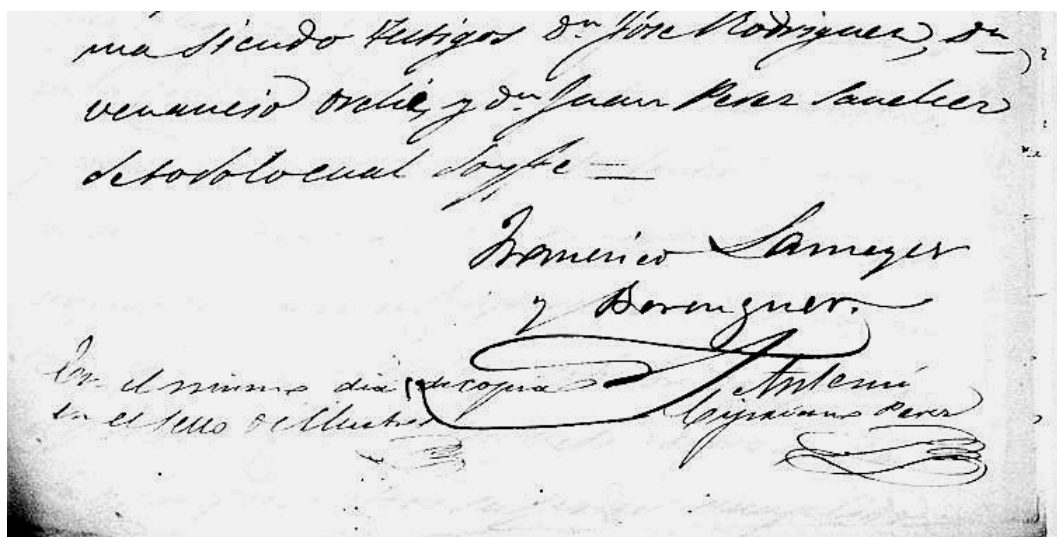 ma siendo testigos Dn José Rodriguez, Dn
venancio y dn Juan Perez Sanchez
de todo lo cual doy fe =
Francisco Lameyer
y Berenguer.
En el mismo dia di copia
en el sello de
Ante mi
Cipriano Perez